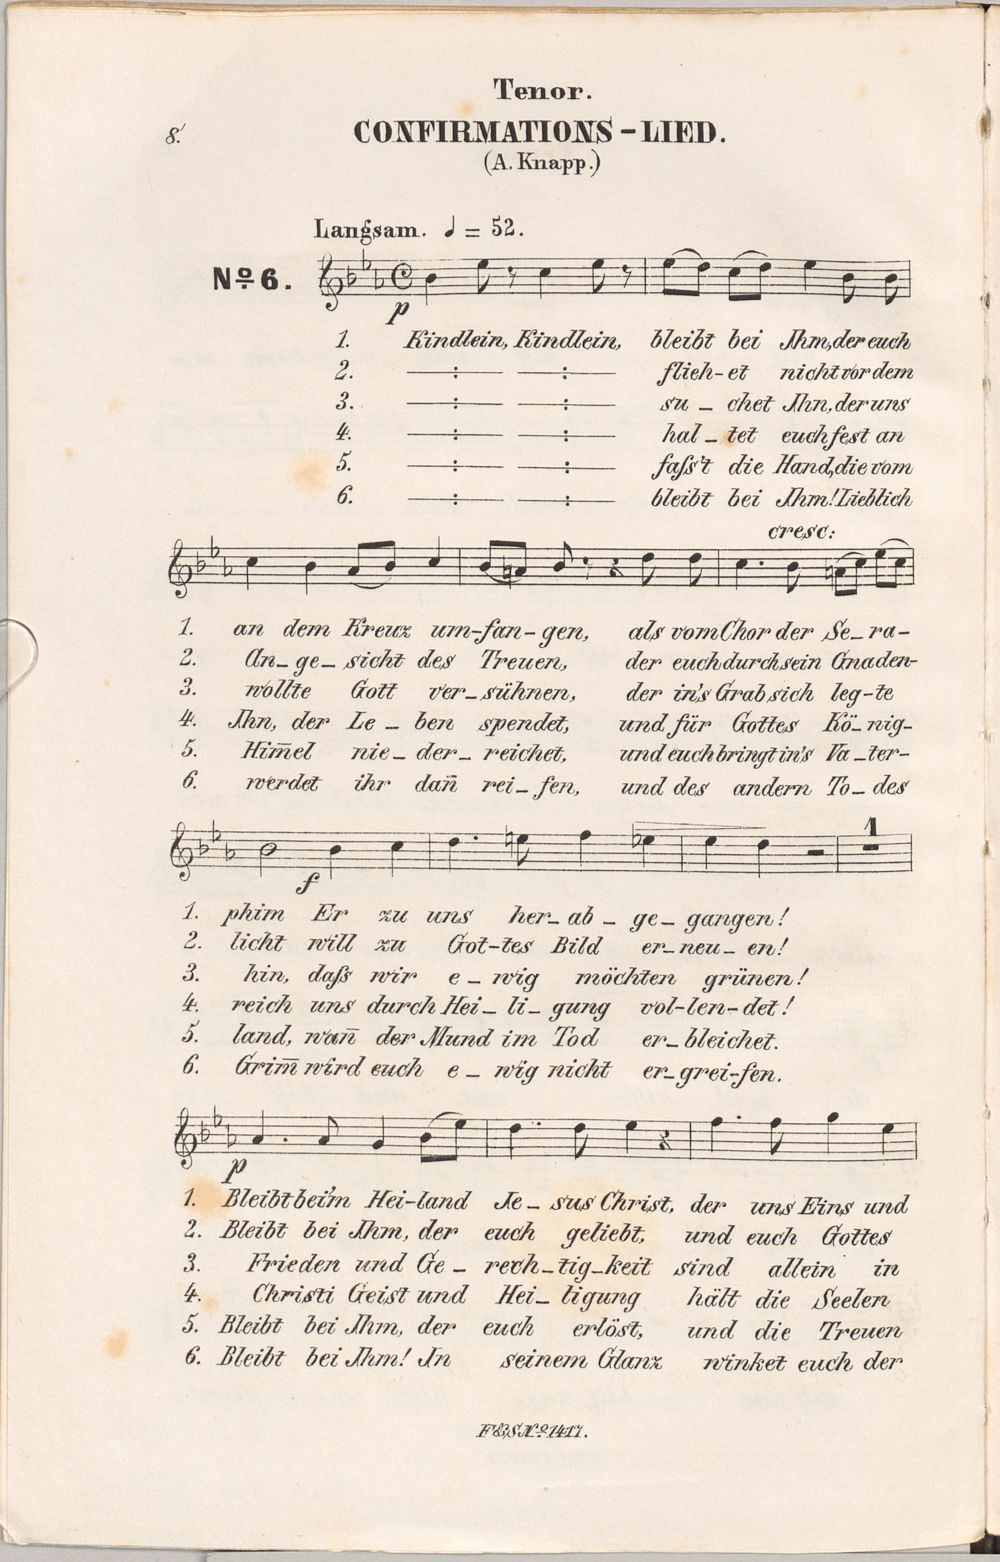 Tenor.
8.
CONFIRMATIONS-LIED.
(A. Knapp.)
Langsam. ♩ = 52.
No 6.
p
1. Kindlein, Kindlein, bleibt bei Jhm, der euch
2. —:— —:— flieh-et nicht vor dem
3. —:— —:— su - chet Jhn, der uns
4. —:— —:— hal - tet euch fest an
5. —:— —:— faſs't die Hand, die vom
6. —:— —:— bleibt bei Jhm! Lieblich
cresc:
1. an dem Kreuz um-fan-gen, als vom Chor der Se-ra-
2. An-ge-sicht des Treuen, der euch durch sein Gnaden-
3. wollte Gott ver-sühnen, der in's Grab sich leg-te
4. Jhn, der Le - ben spendet, und für Gottes Kö-nig-
5. Him̄el nie-der-reichet, und euch bringt in's Va-ter-
6. werdet ihr dan̄ rei-fen, und des andern To-des
1
f
1. phim Er zu uns her-ab-ge-gangen!
2. licht will zu Got-tes Bild er-neu-en!
3. hin, daſs wir e-wig möchten grünen!
4. reich uns durch Hei-li-gung vol-len-det!
5. land, wan̄ der Mund im Tod er-bleichet.
6. Grim̄ wird euch e-wig nicht er-grei-fen.
p
1. Bleibt bei'm Hei-land Je-sus Christ, der uns Eins und
2. Bleibt bei Jhm, der euch geliebt, und euch Gottes
3. Frieden und Ge-rech-tig-keit sind allein in
4. Christi Geist und Hei-ligung hält die Seelen
5. Bleibt bei Jhm, der euch erlöst, und die Treuen
6. Bleibt bei Jhm! Jn seinem Glanz winket euch der
F&S No 1417.